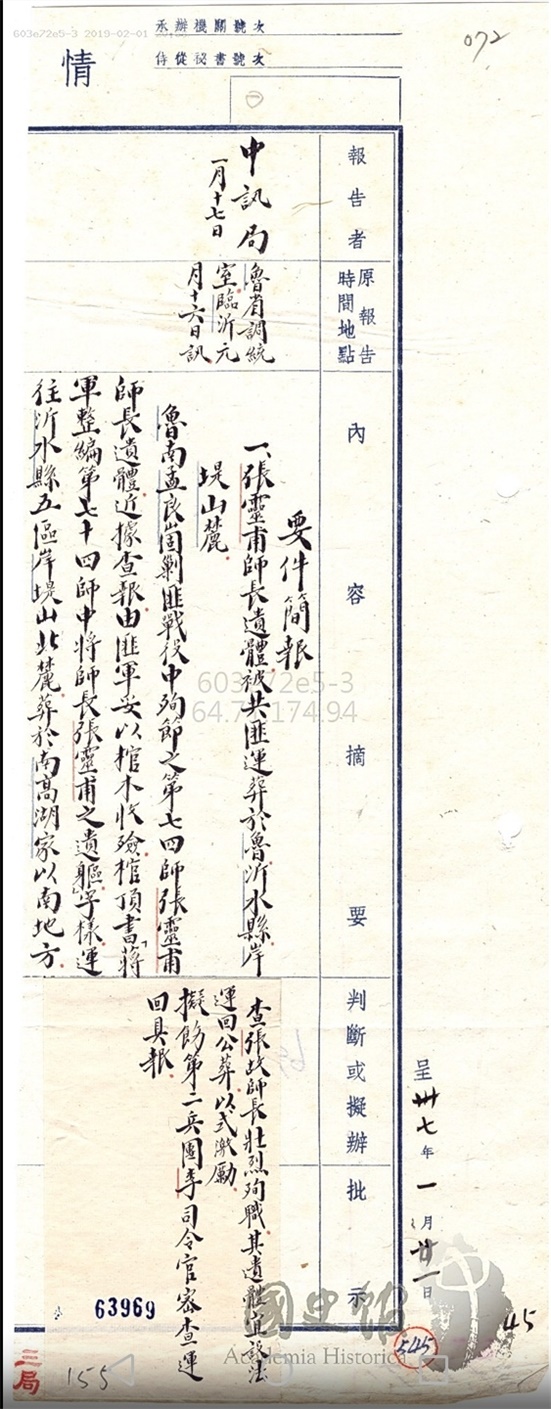 603e72e5-3 2019-02-01
承辦機關號次
侍從秘書號次
情
072
報告者
原報告
時間地點
內容摘要
判斷或擬辦
批示
呈卅七年一月廿一日
中訊局
一月十七日
魯省調統
室臨沂元
月十六日訊
要件簡報
一、張靈甫師長遺體被共匪運葬於魯沂水縣岸
堤山麓
魯南孟良崮剿匪戰役中殉節之第七四師張靈甫
師長遺體近據查報由匪軍妥以棺木收殮棺頂書「蔣
軍整編第七十四師中將師長張靈甫之遺軀」字樣運
往沂水縣五區岸堤山北麓葬於南高湖家以南地方
查張故師長壯烈殉職其遺體宜設法
運回公葬以式激勵
擬飭第二兵團李司令官密查運
回具報
603e72e5-3
64.7 174.94
國史館
Academia Historica
63969
545
45
三局
155